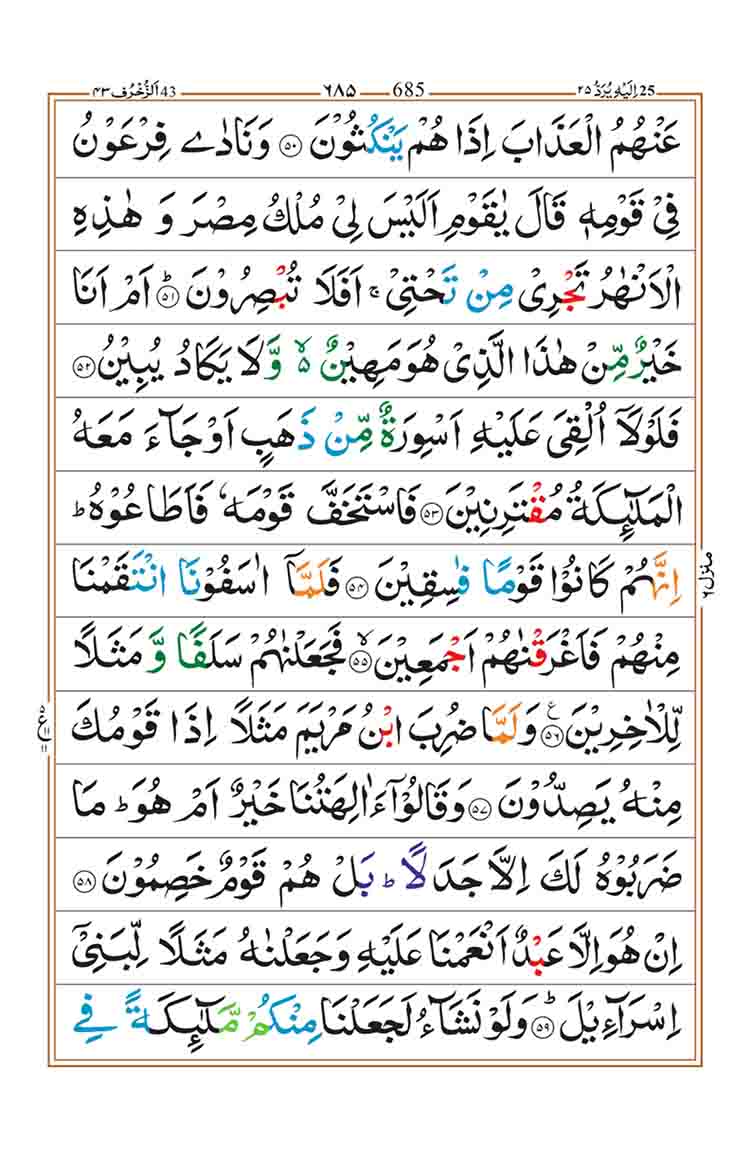 25 اِلَيْهِ يُرَدُّ ٢٥ 685 ٦٨٥ 43 اَلزُّخْرُف ٤٣
عَنْهُمُ الْعَذَابَ اِذَا هُمْ يَنْكُثُوْنَ ﴿۵۰﴾ وَنَادٰى فِرْعَوْنُ
فِيْ قَوْمِهٖ قَالَ يٰقَوْمِ اَلَيْسَ لِيْ مُلْكُ مِصْرَ وَ هٰذِهِ
الْاَنْهٰرُ تَجْرِيْ مِنْ تَحْتِيْ ۚ اَفَلَا تُبْصِرُوْنَ ﴿۵۱﴾ ؕ اَمْ اَنَا
خَيْرٌ مِّنْ هٰذَا الَّذِيْ هُوَ مَهِيْنٌ ۙ۬ وَّلَا يَكَادُ يُبِيْنُ ﴿۵۲﴾
فَلَوْلَاۤ اُلْقِيَ عَلَيْهِ اَسْوِرَةٌ مِّنْ ذَهَبٍ اَوْ جَآءَ مَعَهُ
الْمَلٰٓئِكَةُ مُقْتَرِنِيْنَ ﴿۵۳﴾ فَاسْتَخَفَّ قَوْمَهٗ فَاَطَاعُوْهُ ؕ
اِنَّهُمْ كَانُوْا قَوْمًا فٰسِقِيْنَ ﴿۵۴﴾ فَلَمَّاۤ اٰسَفُوْنَا انْتَقَمْنَا
مِنْهُمْ فَاَغْرَقْنٰهُمْ اَجْمَعِيْنَ ﴿۵۵﴾ ۙ فَجَعَلْنٰهُمْ سَلَفًا وَّ مَثَلًا
لِّلْاٰخِرِيْنَ ﴿۵۶﴾ ع وَلَمَّا ضُرِبَ ابْنُ مَرْيَمَ مَثَلًا اِذَا قَوْمُكَ
مِنْهُ يَصِدُّوْنَ ﴿۵۷﴾ وَقَالُوْۤا ءَاٰلِهَتُنَا خَيْرٌ اَمْ هُوَ ؕ مَا
ضَرَبُوْهُ لَكَ اِلَّا جَدَلًا ؕ بَلْ هُمْ قَوْمٌ خَصِمُوْنَ ﴿۵۸﴾
اِنْ هُوَ اِلَّا عَبْدٌ اَنْعَمْنَا عَلَيْهِ وَجَعَلْنٰهُ مَثَلًا لِّبَنِيْۤ
اِسْرَآءِيْلَ ﴿۵۹﴾ ؕ وَلَوْ نَشَآءُ لَجَعَلْنَا مِنْكُمْ مَّلٰٓئِكَةً فِي
منزل ٦
٥ ع ١١ ١١